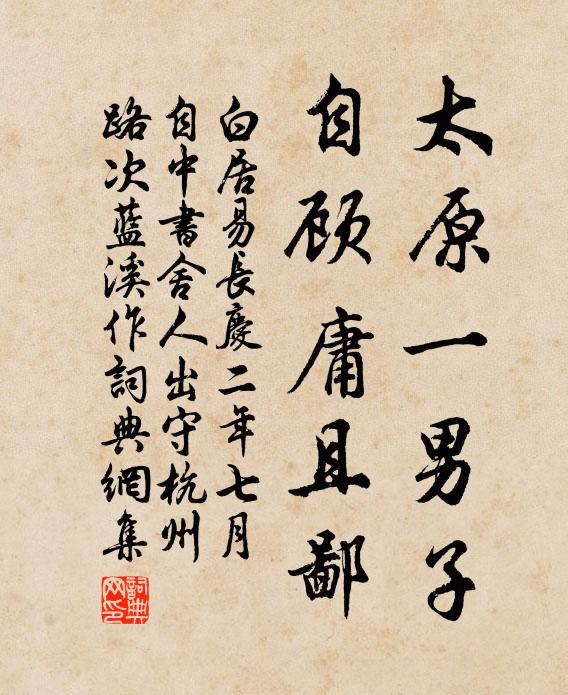 太原一男子
自顾庸且鄙
白居易長慶二年七月
自中書舍人出守杭州
路次藍溪作詞典網集
詞典網印